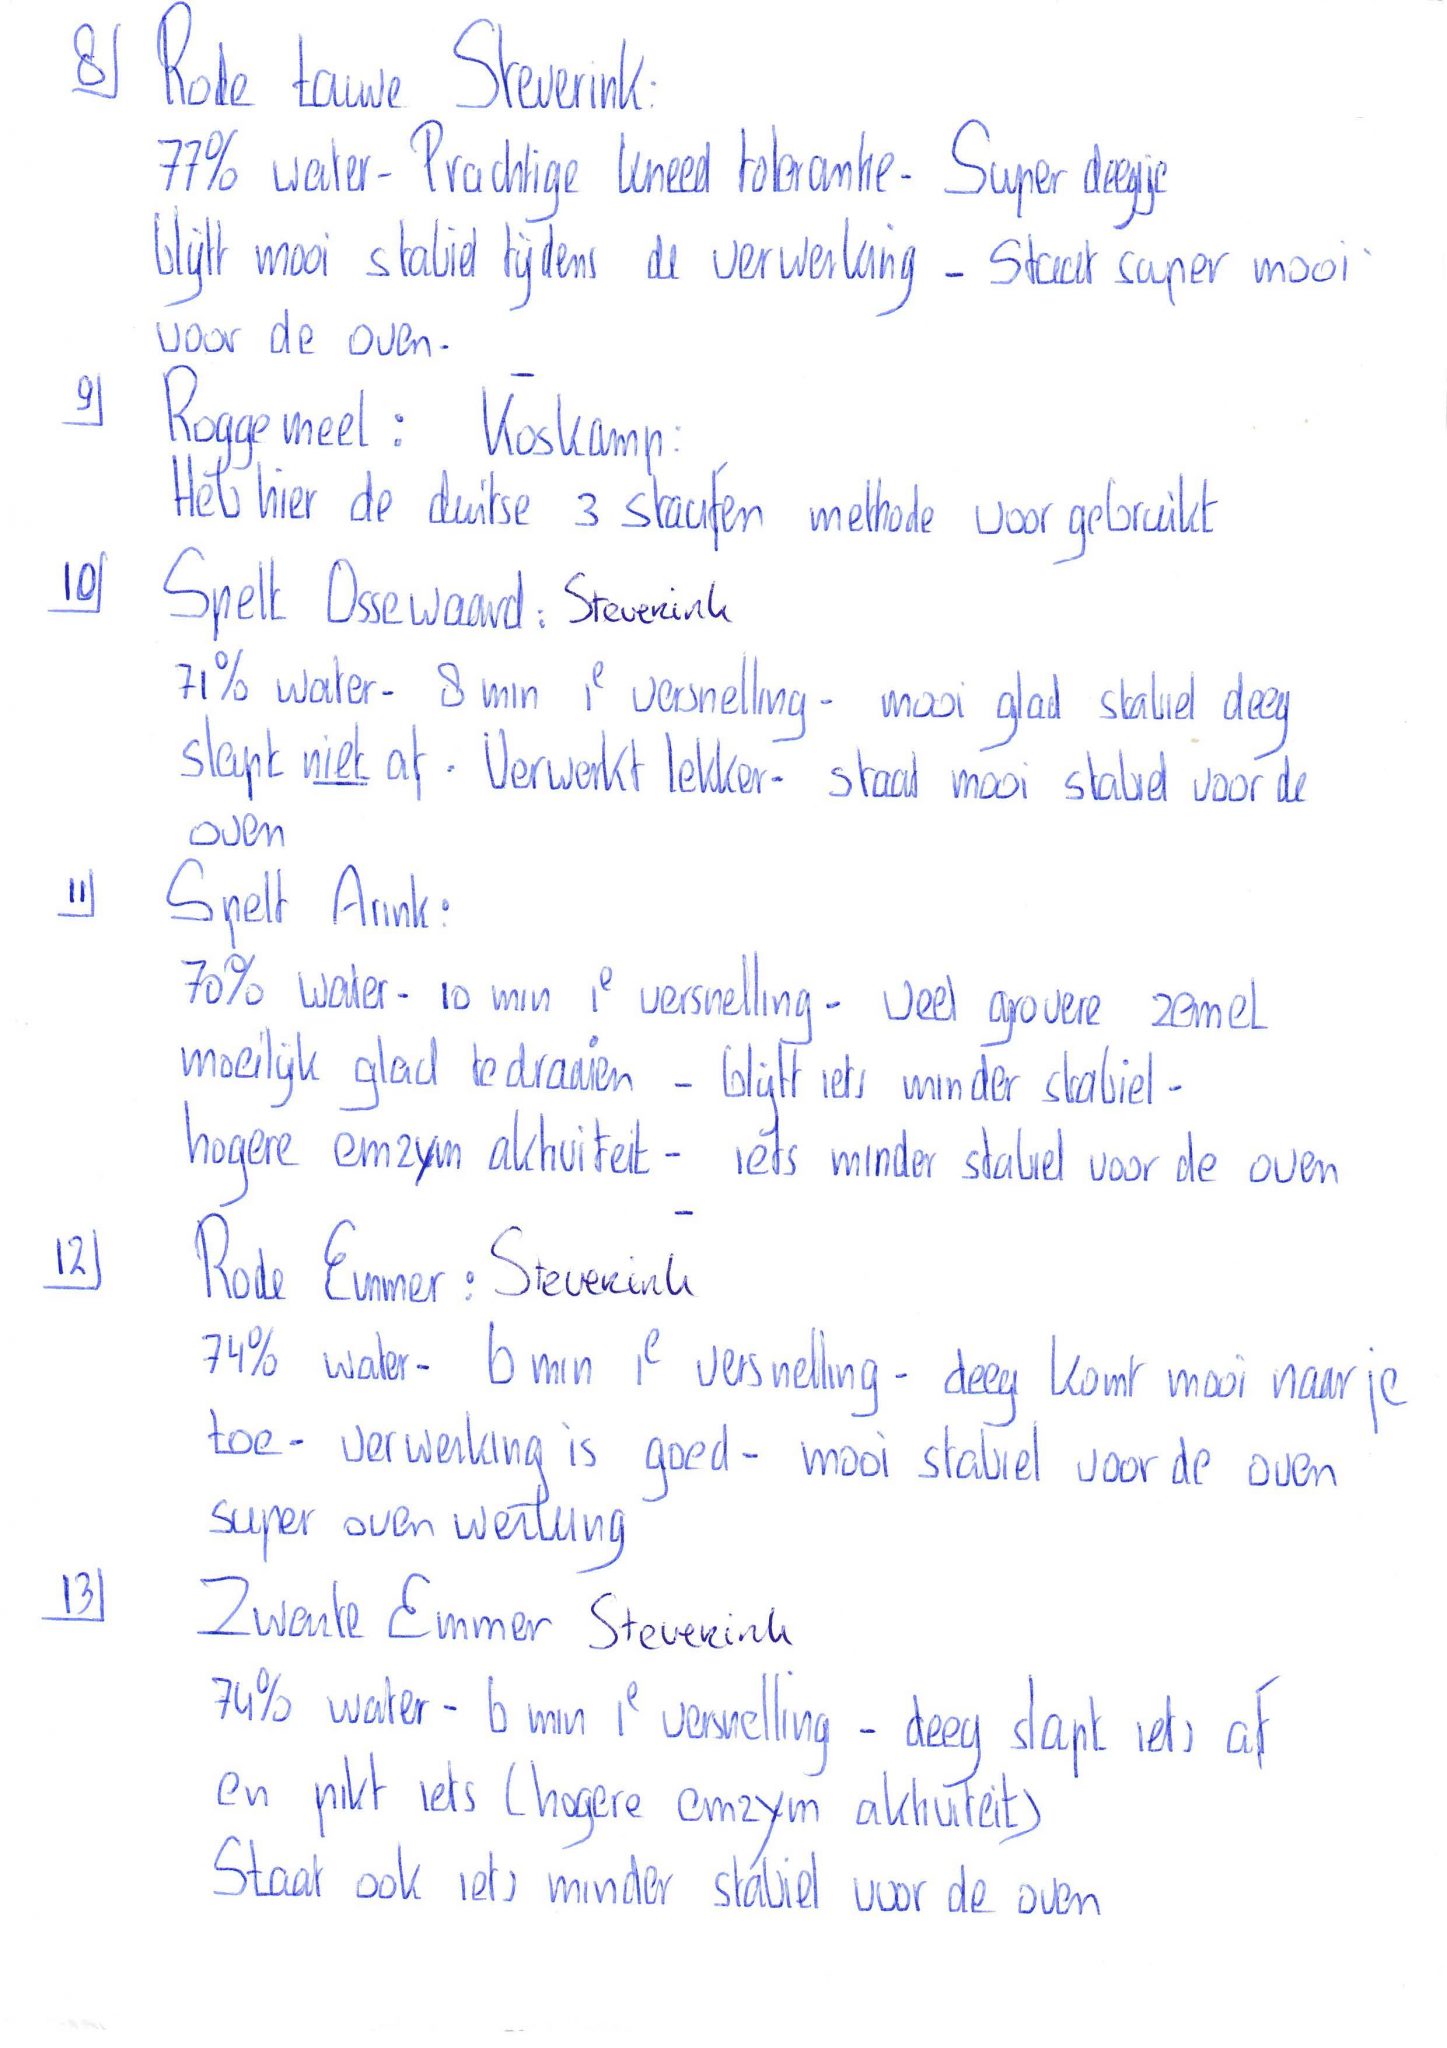 8) Rode tauwe Steverink:
77% water - Prachtige kneed tolerantie - Super deegje
blijft mooi stabiel tijdens de verwerking - Staat super mooi
voor de oven -
9) Roggemeel : Koskamp:
Heb hier de duitse 3 staufen methode voor gebruikt
10) Spelt Ossewaard : Steverink
71% water - 8 min 1e versnelling - mooi glad stabiel deeg
slapt niet af . Verwerkt lekker - staat mooi stabiel voor de
oven
11) Spelt Arink :
70% water - 10 min 1e versnelling - veel grovere zemel
moeilijk glad te draaien - blijft iets minder stabiel -
hogere emzym aktiviteit - iets minder stabiel voor de oven
12) Rode Emmer : Steverink
74% water - 6 min 1e versnelling - deeg komt mooi naar je
toe - verwerking is goed - mooi stabiel voor de oven
super oven werking
13) Zwarte Emmer Steverink
74% water - 6 min 1e versnelling - deeg slapt iets af
en pikt iets (hogere emzym aktiviteit)
Staat ook iets minder stabiel voor de oven